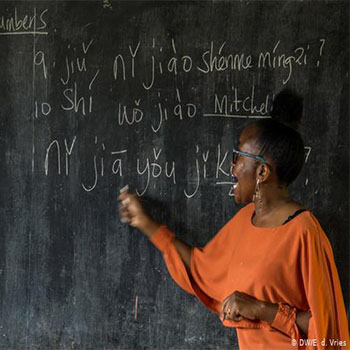 numbers
9 jiǔ, nǐ jiào shénme míngzi?
10 Shí wǒ jiào Mitchel
nǐ jiā yǒu jǐ ?
© DW/E. d. Vries